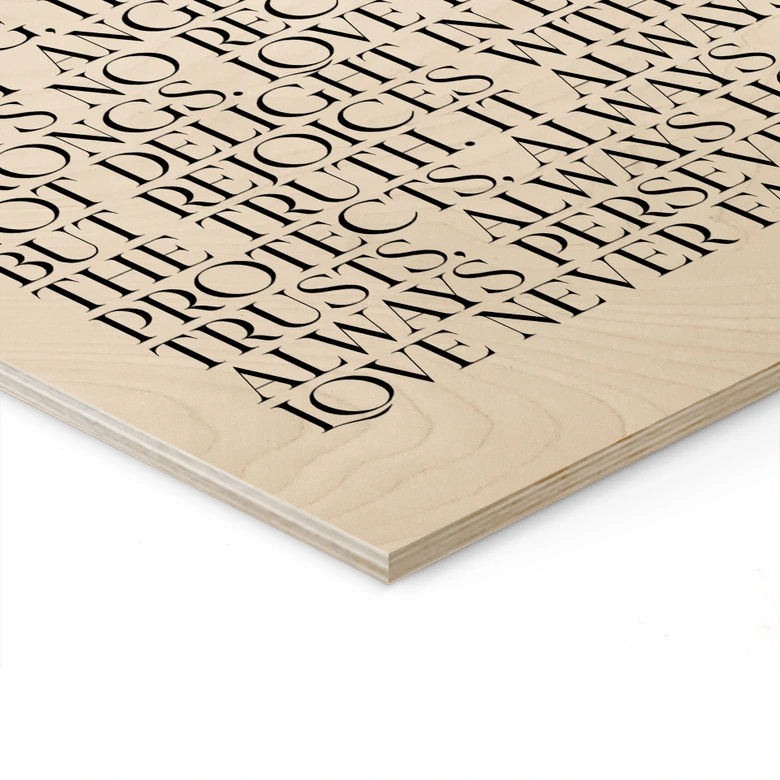 ANG
NO REC
ONGS. LOVE
OT DELIGHT IN E
BUT REJOICES WITH
THE TRUTH. IT ALWAY
PROTECTS, ALWAYS
TRUSTS, ALWAYS H
ALWAYS PERSEVE
LOVE NEVER FA